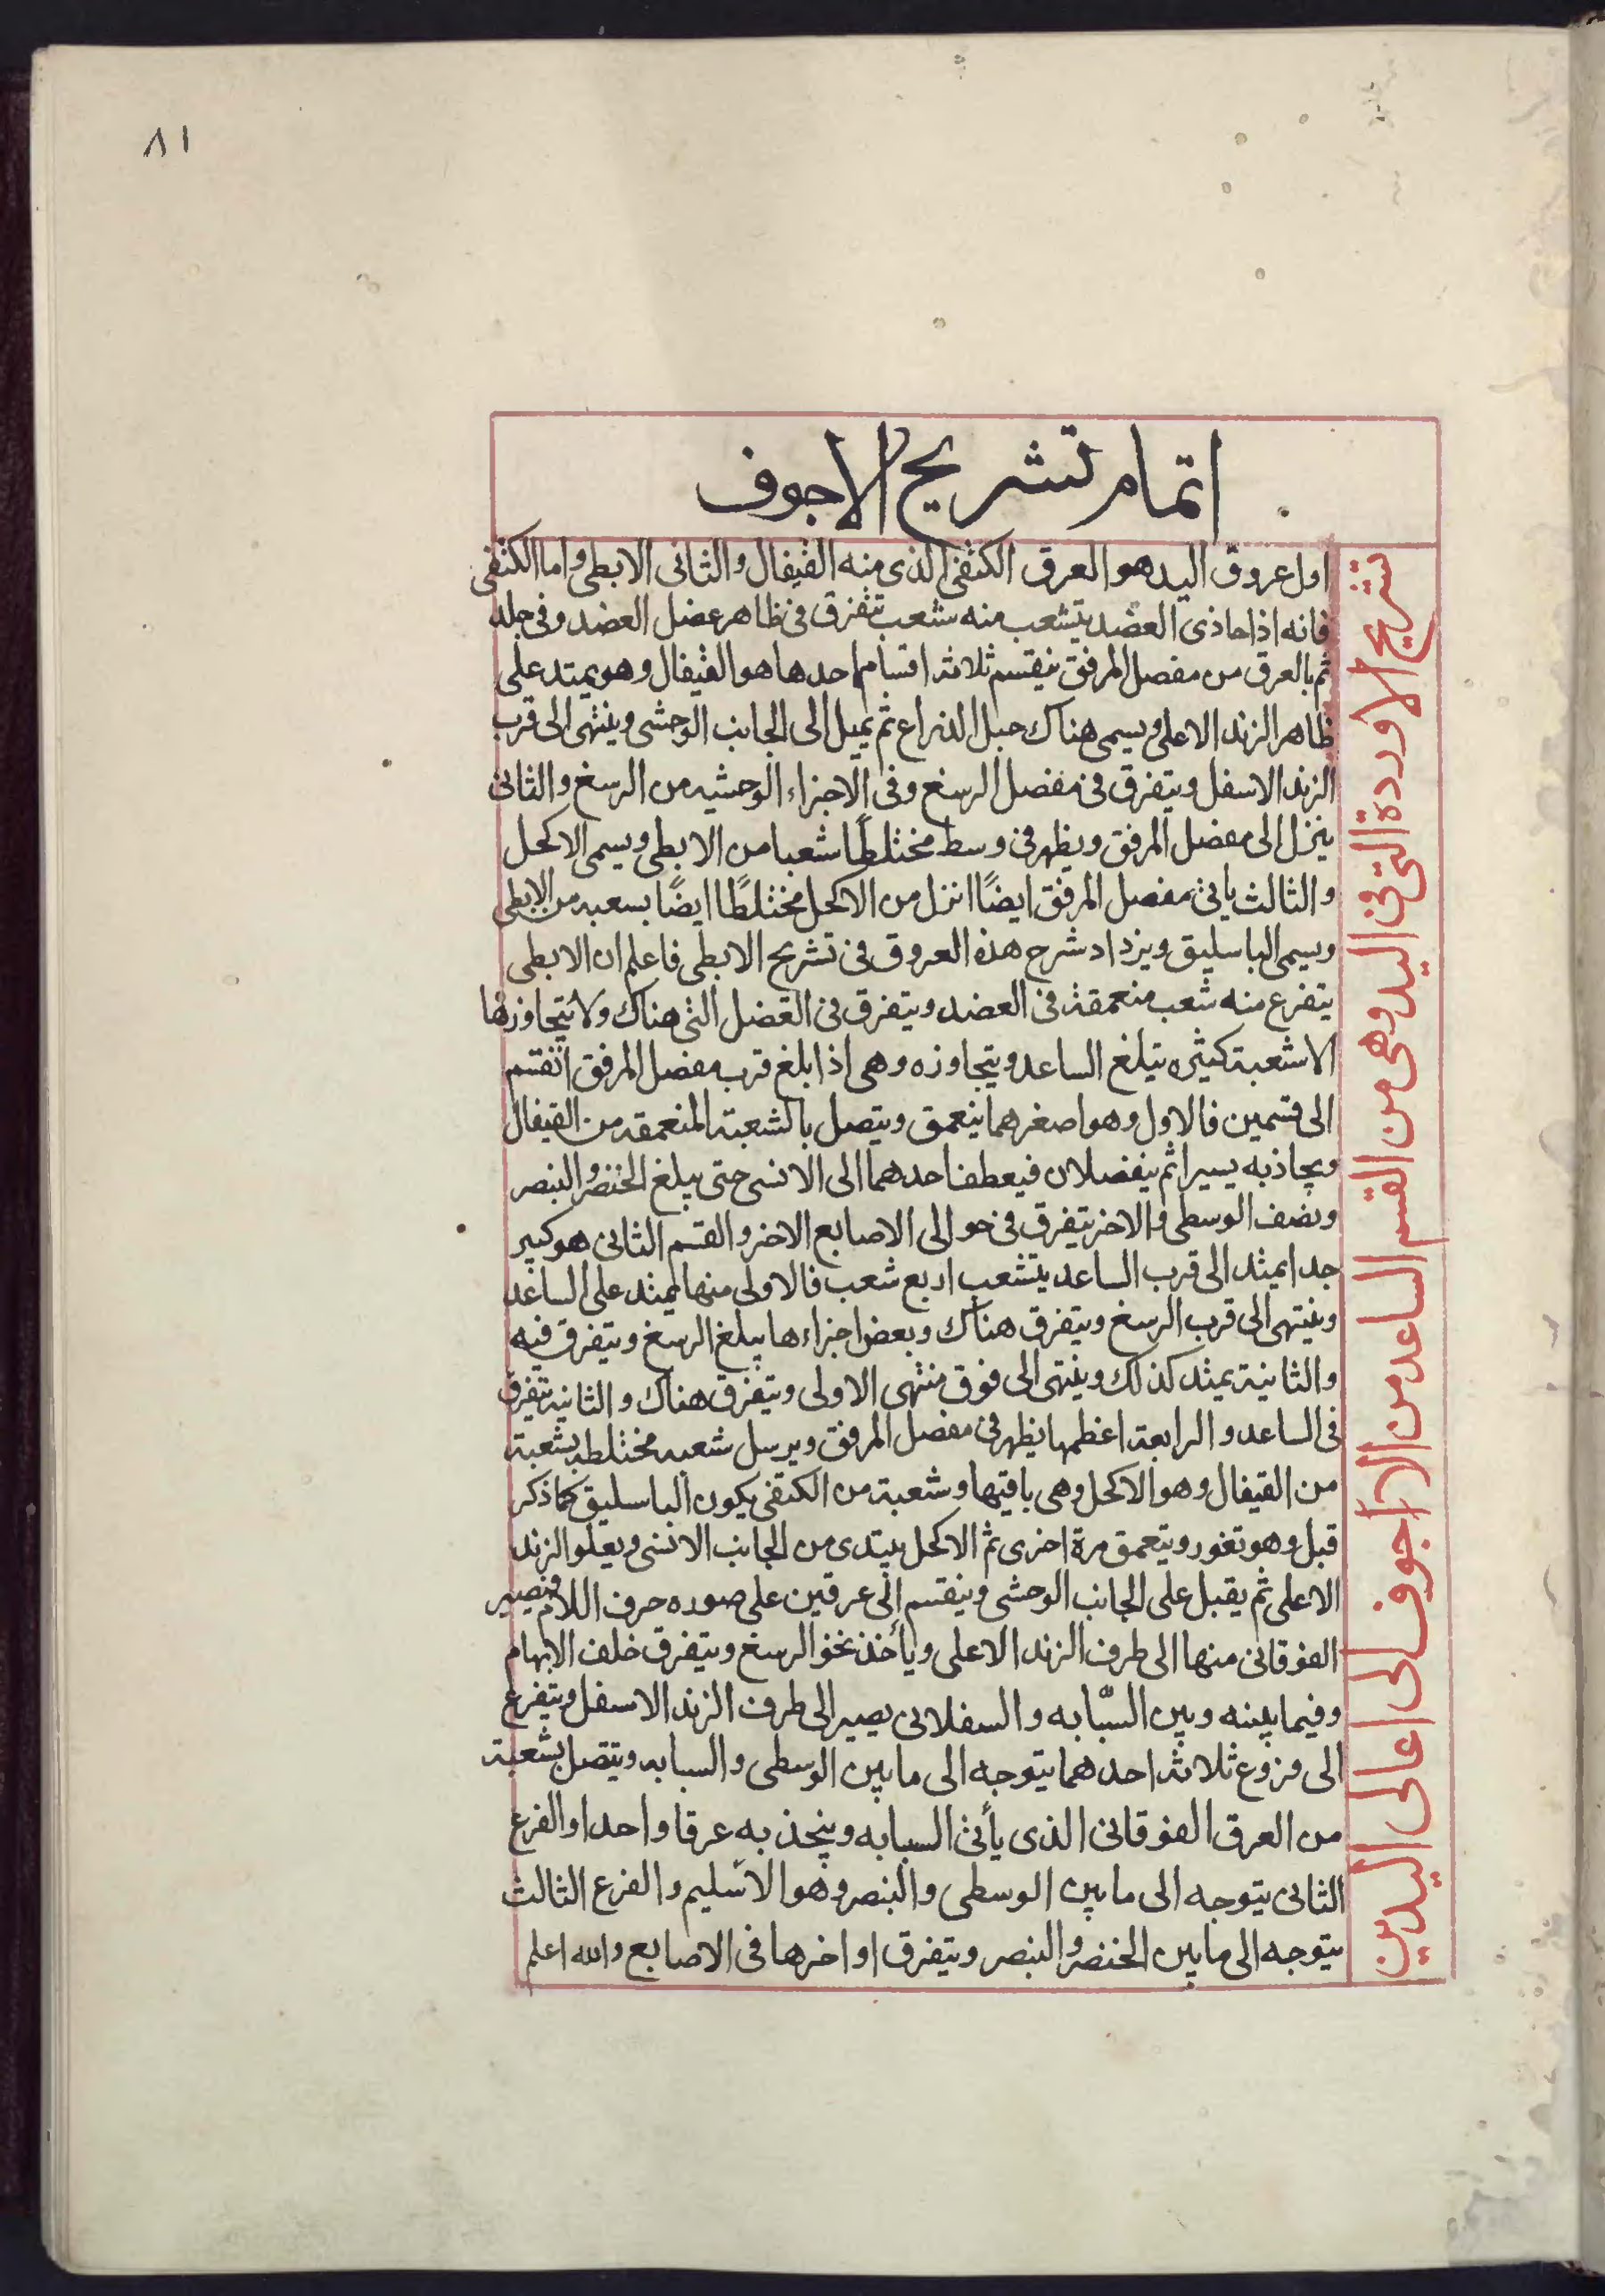 ٨١
اتمام تشريح الاجوف
تشريح الاوردة التى فى اليد وهى من القسم الساعد من الاجوف الى اعالى اليدين
اول عروق اليد هو العرق الكتفى الذى منه القيفال والثانى الابطى واما الكتفى
فانه اذا حاذى العضد يتشعب منه شعب تتفرق فى ظاهر عضل العضد وفى جلده
ثم بالعرق من مفصل المرفق ينقسم ثلاثة اقسام احدها هو القيفال وهو يمتد على
ظاهر الزند الاعلى ويسمى هناك حبل الذراع ثم يميل الى الجانب الوحشى وينتهى الى قرب
الزند الاسفل ويتفرق فى مفصل الرسغ وفى الاجزاء الوحشيه من الرسغ والثانى
ينزل الى مفصل المرفق ويظهر فى وسط مختلطًا شعبا من الابطى ويسمى الاكحل
والثالث يانى مفصل المرفق ايضًا انزل من الاكحل مختلطًا ايضًا بسعبه من الابطى
ويسمى الباسليق ويزداد شرح هذه العروق فى تشريح الابطى فاعلم ان الابطى
يتفرع منه شعب منعمقة فى العضد ويتفرق فى العضل التى هناك ولا يتجاوزها
الا شعبة كثيره تبلغ الساعد ويتجاوزه وهى اذا بلغ قرب مفصل المرفق انقسم
الى قسمين فالاول وهو اصغرهما ينعمق ويتصل بالشعبة المنعمقه من القيفال
ويجاذبه يسيرا ثم ينفصلان فيعطف احدهما الى الانسى حتى يبلغ الخنصر والبنصر
ونصف الوسطى والاخر يتفرق فى حوالى الاصابع الاخر والقسم الثانى هو كبير
جدا يمتد الى قرب الساعد يتشعب اربع شعب فالاولى منها يمتد على الساعد
وينتهى الى قرب الرسغ ويتفرق هناك وبعض اجزاءها يبلغ الرسغ ويتفرق فيه
والثانية يمتد كذلك وينتهى الى فوق منتهى الاولى ويتفرق هناك والثانية يتفرق
فى الساعد والرابعة اعظمها يظهر فى مفصل المرفق ويرسل شعبه مختلطه بشعبة
من القيفال وهو الاكحل وهى باقيها وشعبة من الكتفى يكون الباسليق كما ذكر
قبل وهو تغور ويتعمق مرة اخرى ثم الاكحل يبتدى من الجانب الانسى ويعلو الزند
الاعلى ثم يقبل على الجانب الوحشى وينقسم الى عرقين على صوره حرف اللام فيصير
الفوقانى منها الى طرف الزند الاعلى ويأخذ نحو الرسغ ويتفرق خلف الابهام
وفيما بينه وبين السبّابه والسفلانى يصير الى طرف الزند الاسفل ويتفرع
الى فروع ثلاثة احدهما يتوجه الى ما بين الوسطى والسبابه ويتصل بشعبة
من العرق الفوقانى الذى يأتى السبابه ويتحذ به عرقا واحدا والفرع
الثانى يتوجه الى ما بين الوسطى والبنصر وهو الاسليم والفرع الثالث
يتوجه الى ما بين الخنصر والبنصر ويتفرق اواخرها فى الاصابع والله اعلم